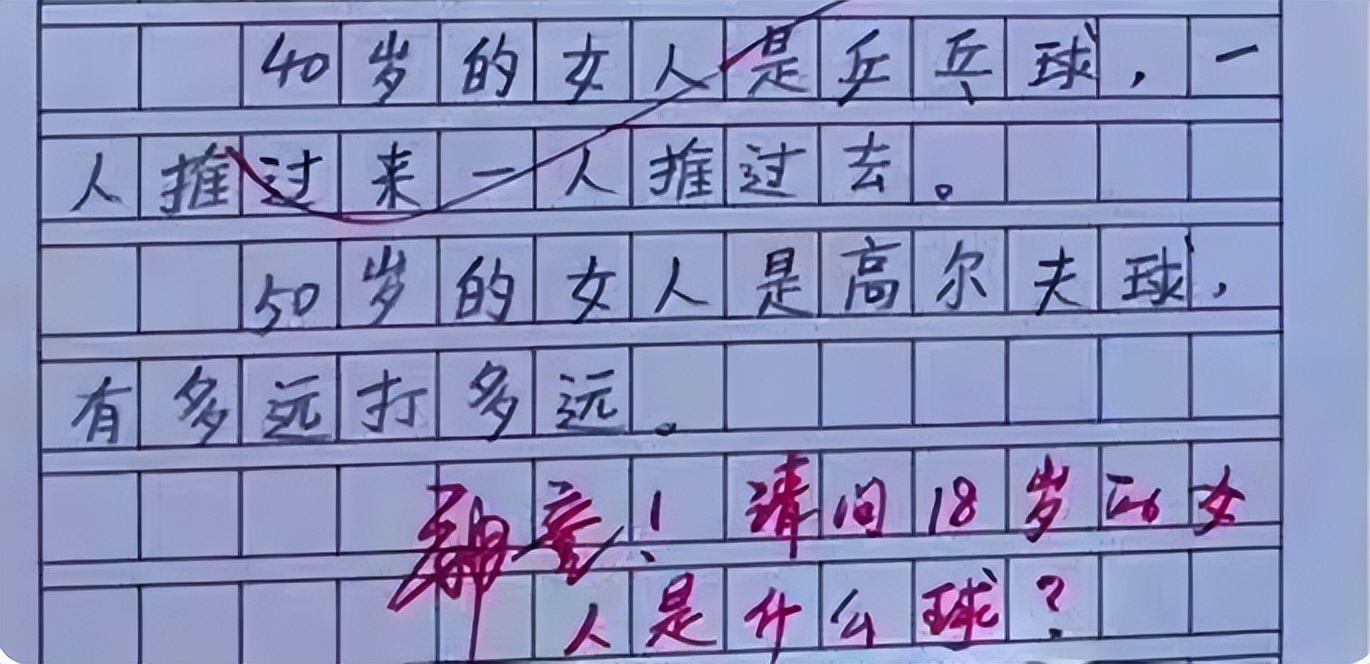 40岁的女人是乒乓球，一
人推过来一人推过去。
50岁的女人是高尔夫球，
有多远打多远。
！请问18岁的女
人是什么球？